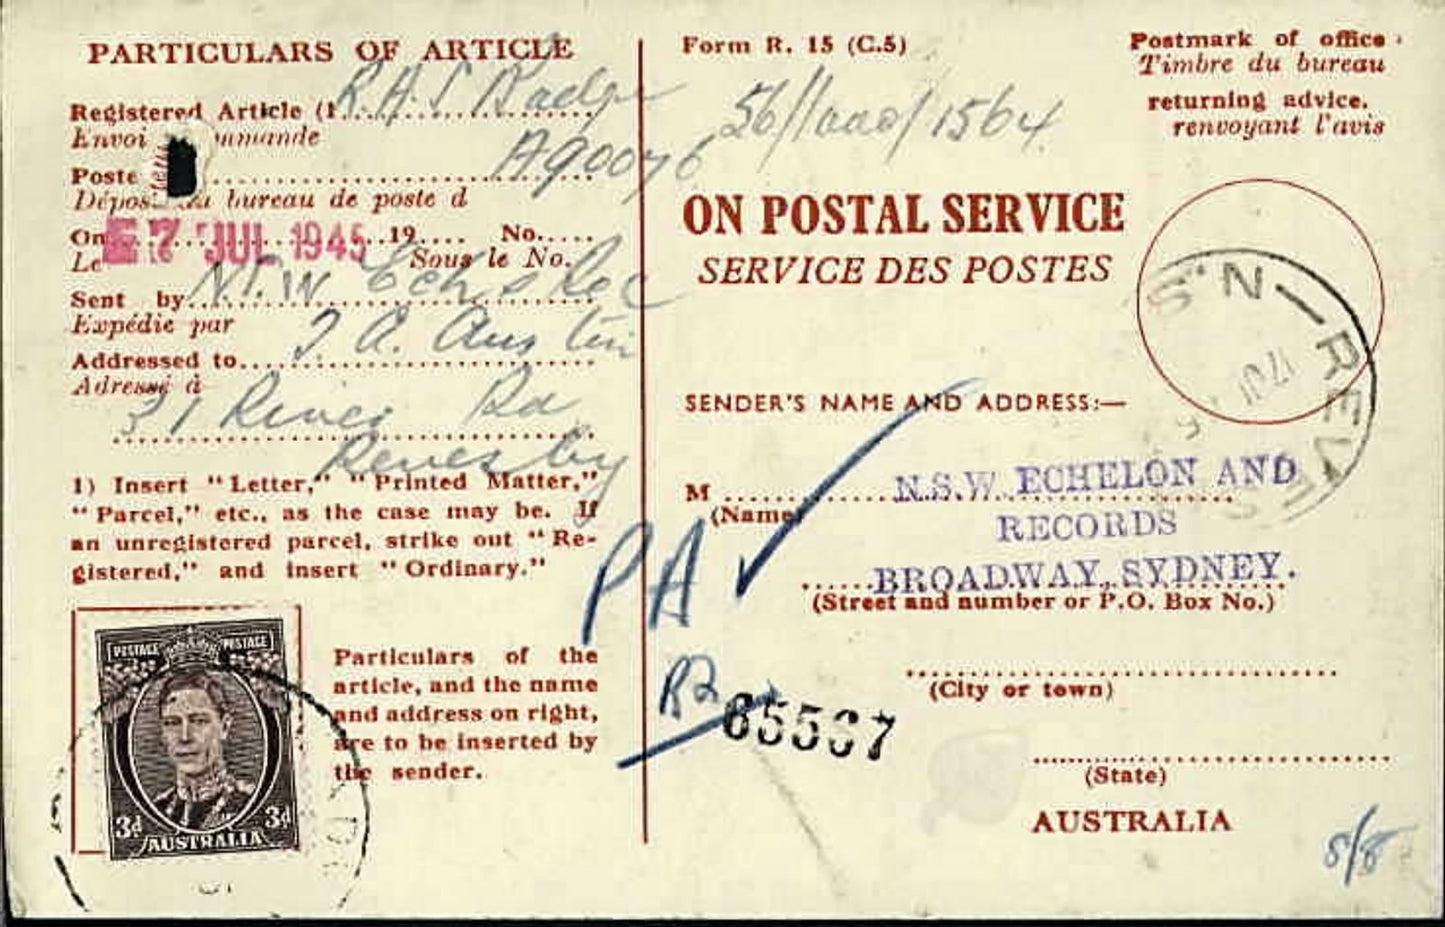 PARTICULARS OF ARTICLE
Registered Article (1 R.A.S Badge
Envoi ommande
A90076
Poste
Dépos au bureau de poste d
On 7 JUL 1945 19 No.
Le Sous le No.
Sent by N.S.W Ech & Rec
Expédie par
Addressed to J A. Austin
Adressé à
31 River Rd
Revesby
1) Insert "Letter," "Printed Matter,"
"Parcel," etc., as the case may be. If
an unregistered parcel, strike out "Re-
gistered," and insert "Ordinary."
POSTAGE POSTAGE
3d 3d
AUSTRALIA
Particulars of the
article, and the name
and address on right,
are to be inserted by
the sender.
Form R. 15 (C.5)
56/1000/1564
ON POSTAL SERVICE
SERVICE DES POSTES
Postmark of office
Timbre du bureau
returning advice.
renvoyant l'avis
REVES N.S
17 JL
SENDER'S NAME AND ADDRESS:—
M N.S.W. ECHELON AND
(Name)
RECORDS
BROADWAY, SYDNEY.
(Street and number or P.O. Box No.)
PA
R2
65567
(City or town)
(State)
AUSTRALIA
8/8